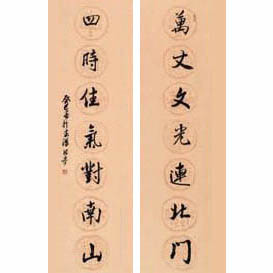 萬丈文光連北門
四時佳氣對南山